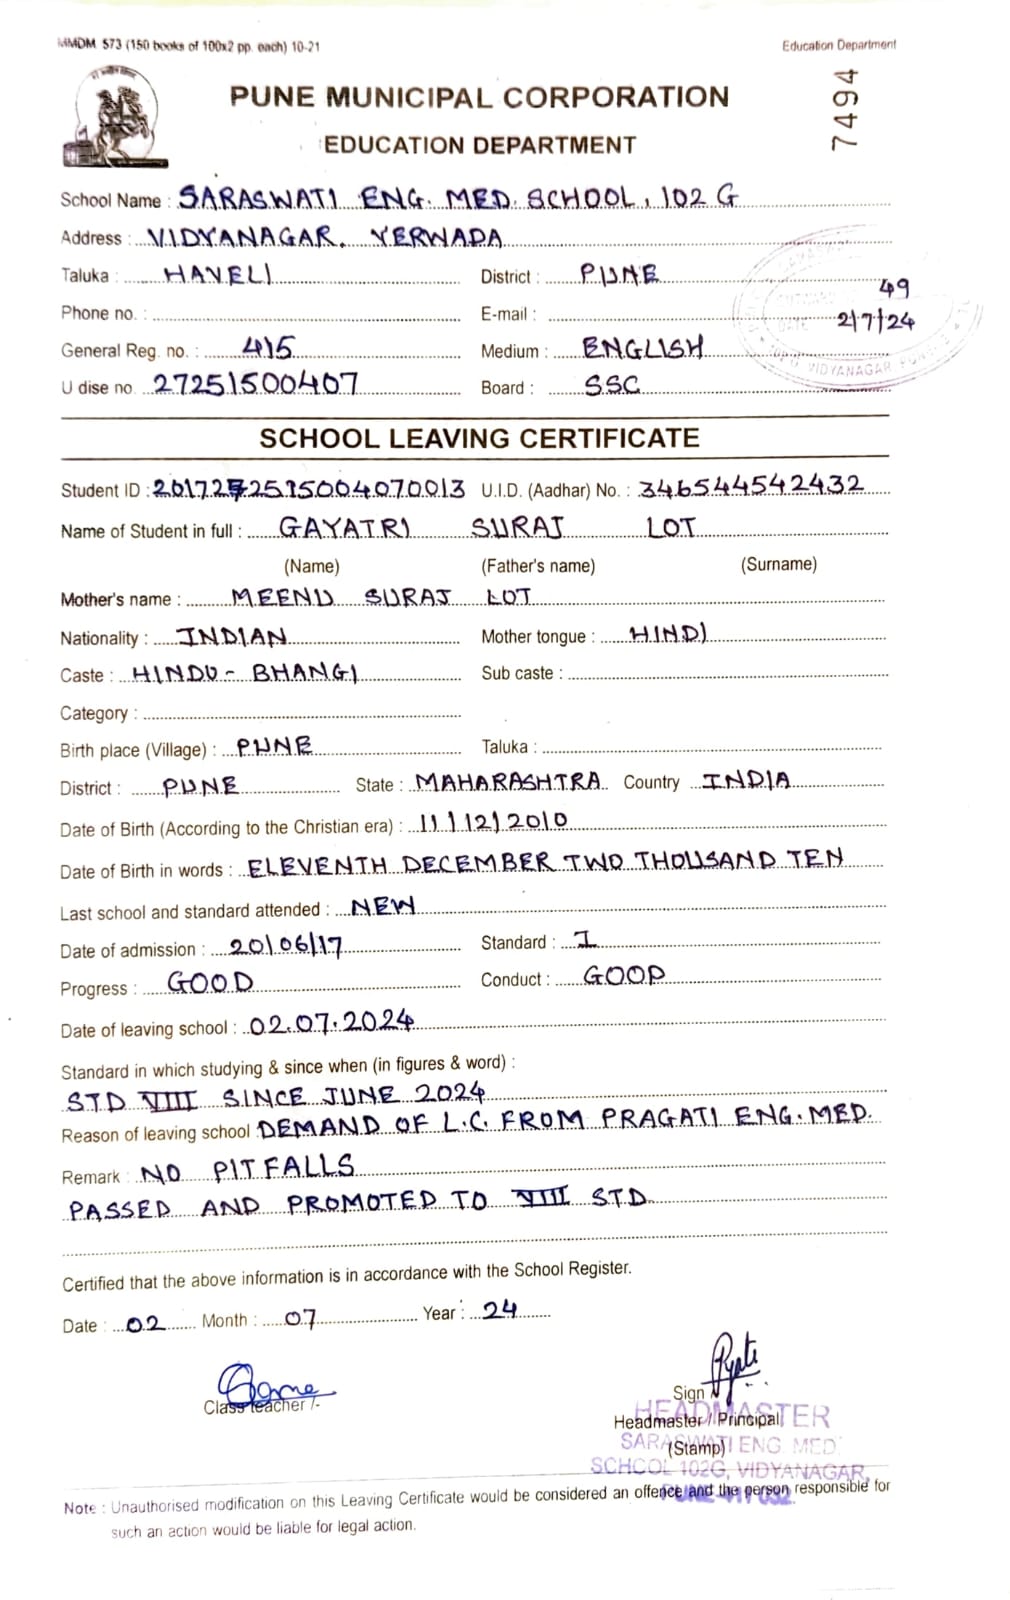 MMDM 573 (150 books of 100x2 pp. each) 10-21
Education Department
7494
PUNE MUNICIPAL CORPORATION
EDUCATION DEPARTMENT
School Name : SARASWATI ENG. MED. SCHOOL, 102 G
Address : VIDYANAGAR, YERWADA
Taluka : HAVELI District : PUNE
49
Phone no. : E-mail :
2/7/24
General Reg. no. : 415 Medium : ENGLISH
VIDYANAGAR
U dise no. 27251500407 Board : SSC
SCHOOL LEAVING CERTIFICATE
Student ID : 2017272515004070013 U.I.D. (Aadhar) No. : 346544542432
Name of Student in full : GAYATRI SURAJ LOT
(Name) (Father's name) (Surname)
Mother's name : MEENU SURAJ LOT
Nationality : INDIAN Mother tongue : HINDI
Caste : HINDU - BHANGI Sub caste :
Category :
Birth place (Village) : PUNE Taluka :
District : PUNE State : MAHARASHTRA Country INDIA
Date of Birth (According to the Christian era) : 11/12/2010
Date of Birth in words : ELEVENTH DECEMBER TWO THOUSAND TEN
Last school and standard attended : NEW
Date of admission : 20/06/17 Standard : I
Progress : GOOD Conduct : GOOD
Date of leaving school : 02.07.2024
Standard in which studying & since when (in figures & word) :
STD VIII SINCE JUNE 2024
Reason of leaving school DEMAND OF L.C. FROM PRAGATI ENG. MED.
Remark : NO PITFALLS
PASSED AND PROMOTED TO VIII STD
Certified that the above information is in accordance with the School Register.
Date : 02 Month : 07 Year : 24
Class teacher /- Sign
HEADMASTER
Headmaster / Principal
SARASWATI ENG. MED.
(Stamp)
SCHOOL 102G, VIDYANAGAR,
Note : Unauthorised modification on this Leaving Certificate would be considered an offence and the person responsible for
such an action would be liable for legal action.